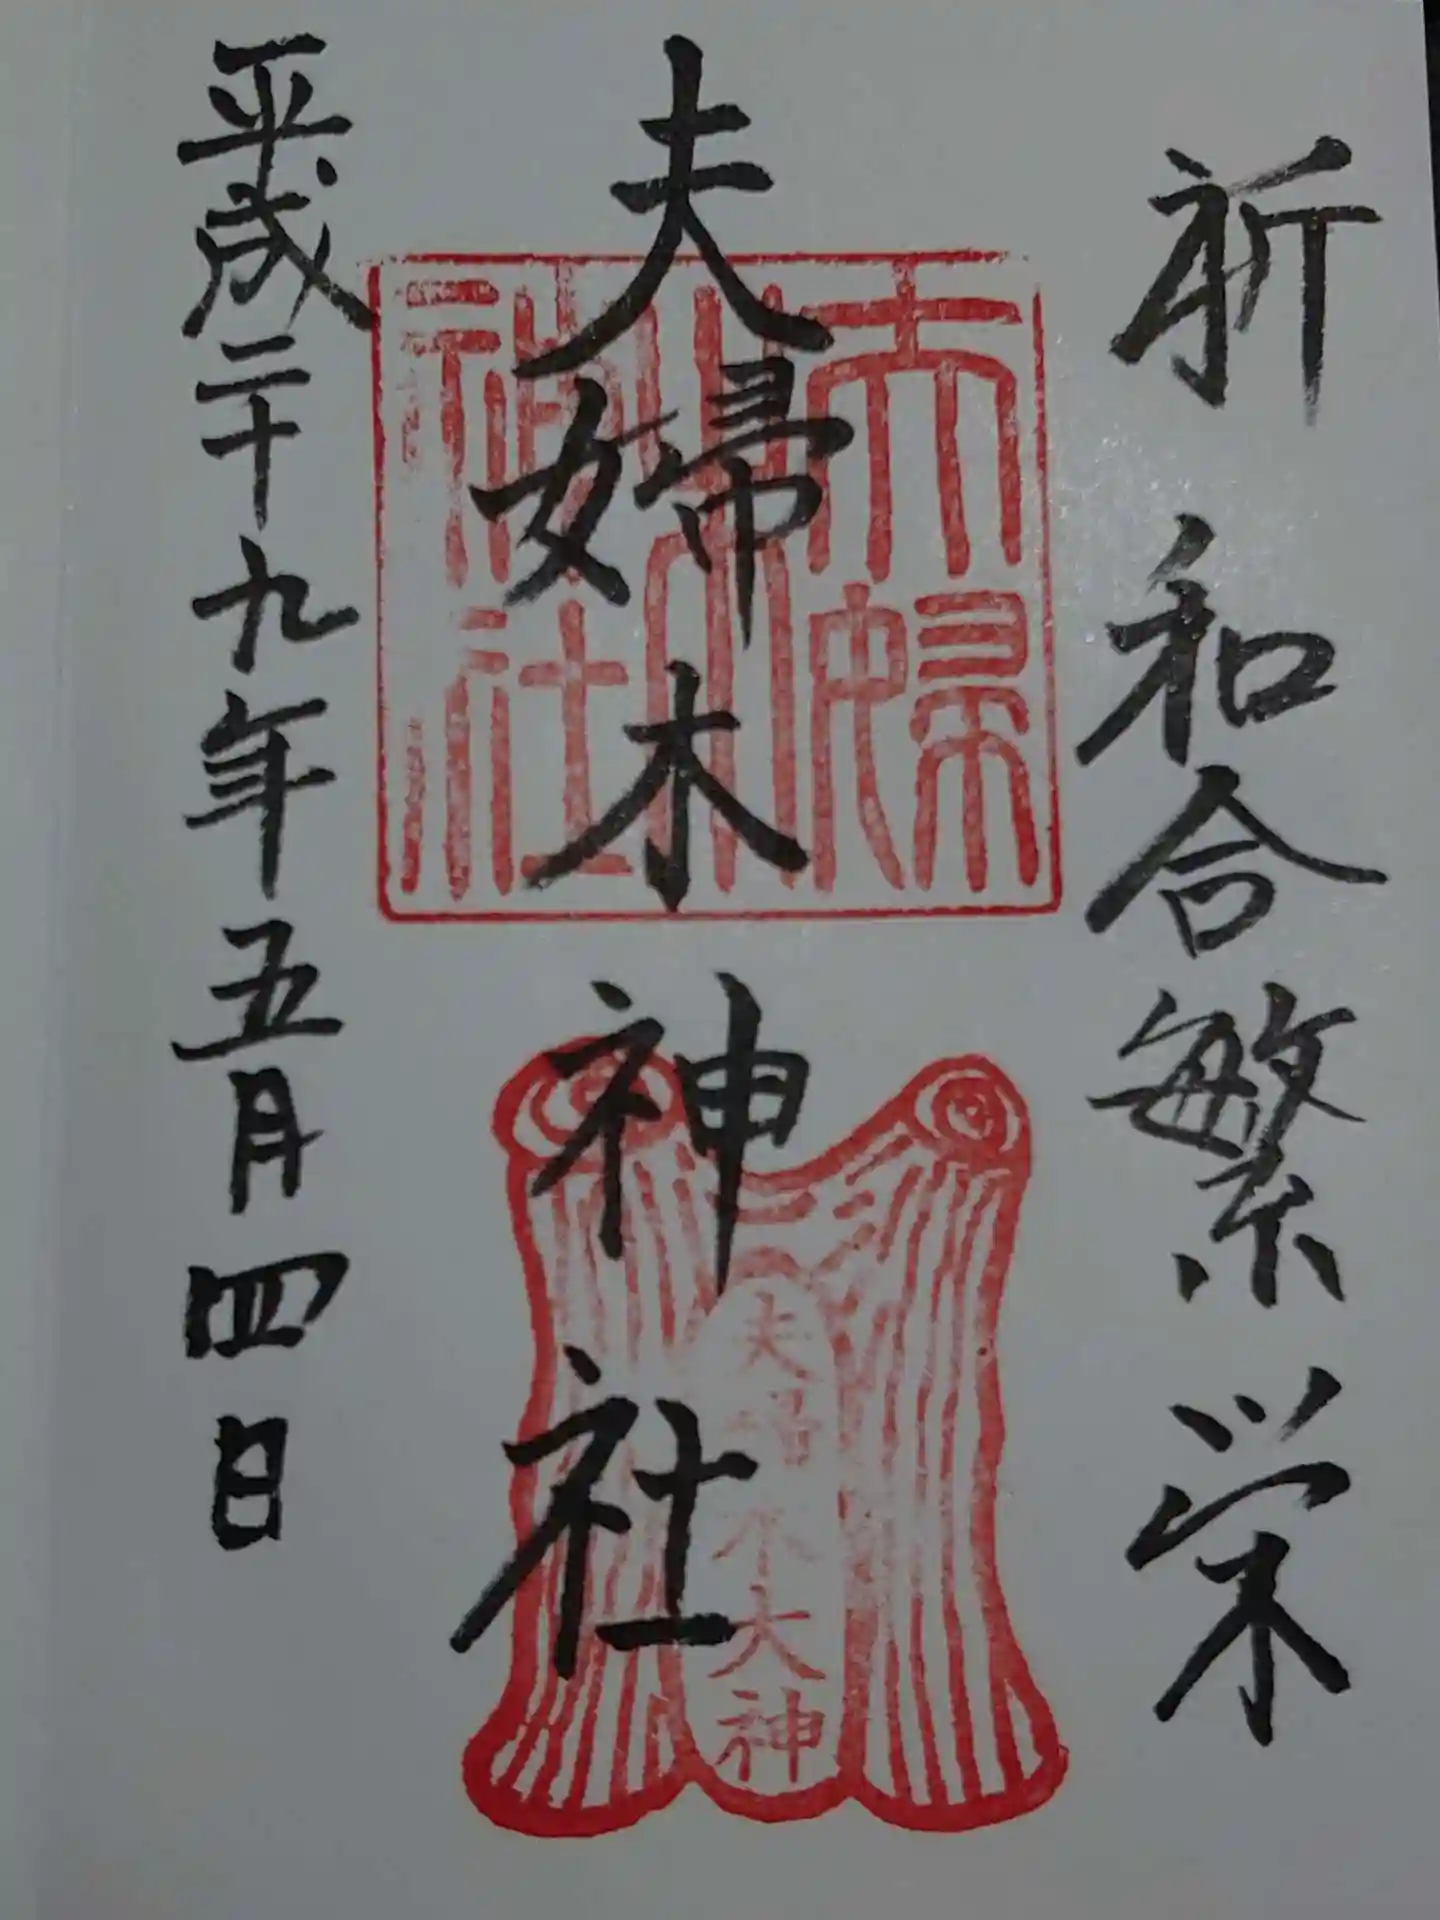 祈 和合繁栄
夫婦木神社
平成二十九年五月四日
夫婦木神社
夫婦木大神